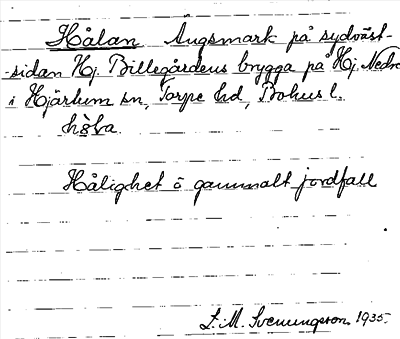 Hålan Ängsmark på sydväst-
-sidan Hj. Billegårdens brygga på Hj. Nedre
i Hjärtum sn, Torpe hd, Bohus l.
Hålighet å gammalt jordfall
L. M. Svenungsson 1935.